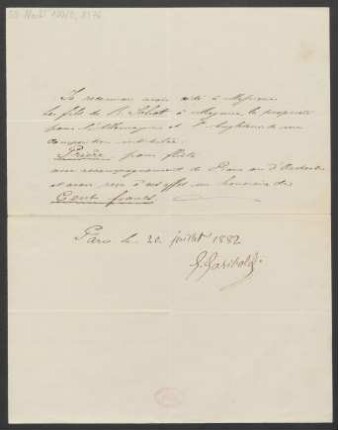 Je reconnais avoir cédé à Messieurs
les fils de B. Schott à Mayence, la propriété
pour l'Allemagne et l'Angleterre de ma
composition intitulée:
Prière pour flûte
avec accompagnement de Piano ou d'Orchestre
et avoir reçu à cet effet un honoraire de
Cent francs
Paris le 20 juillet 1882
G Gariboldi